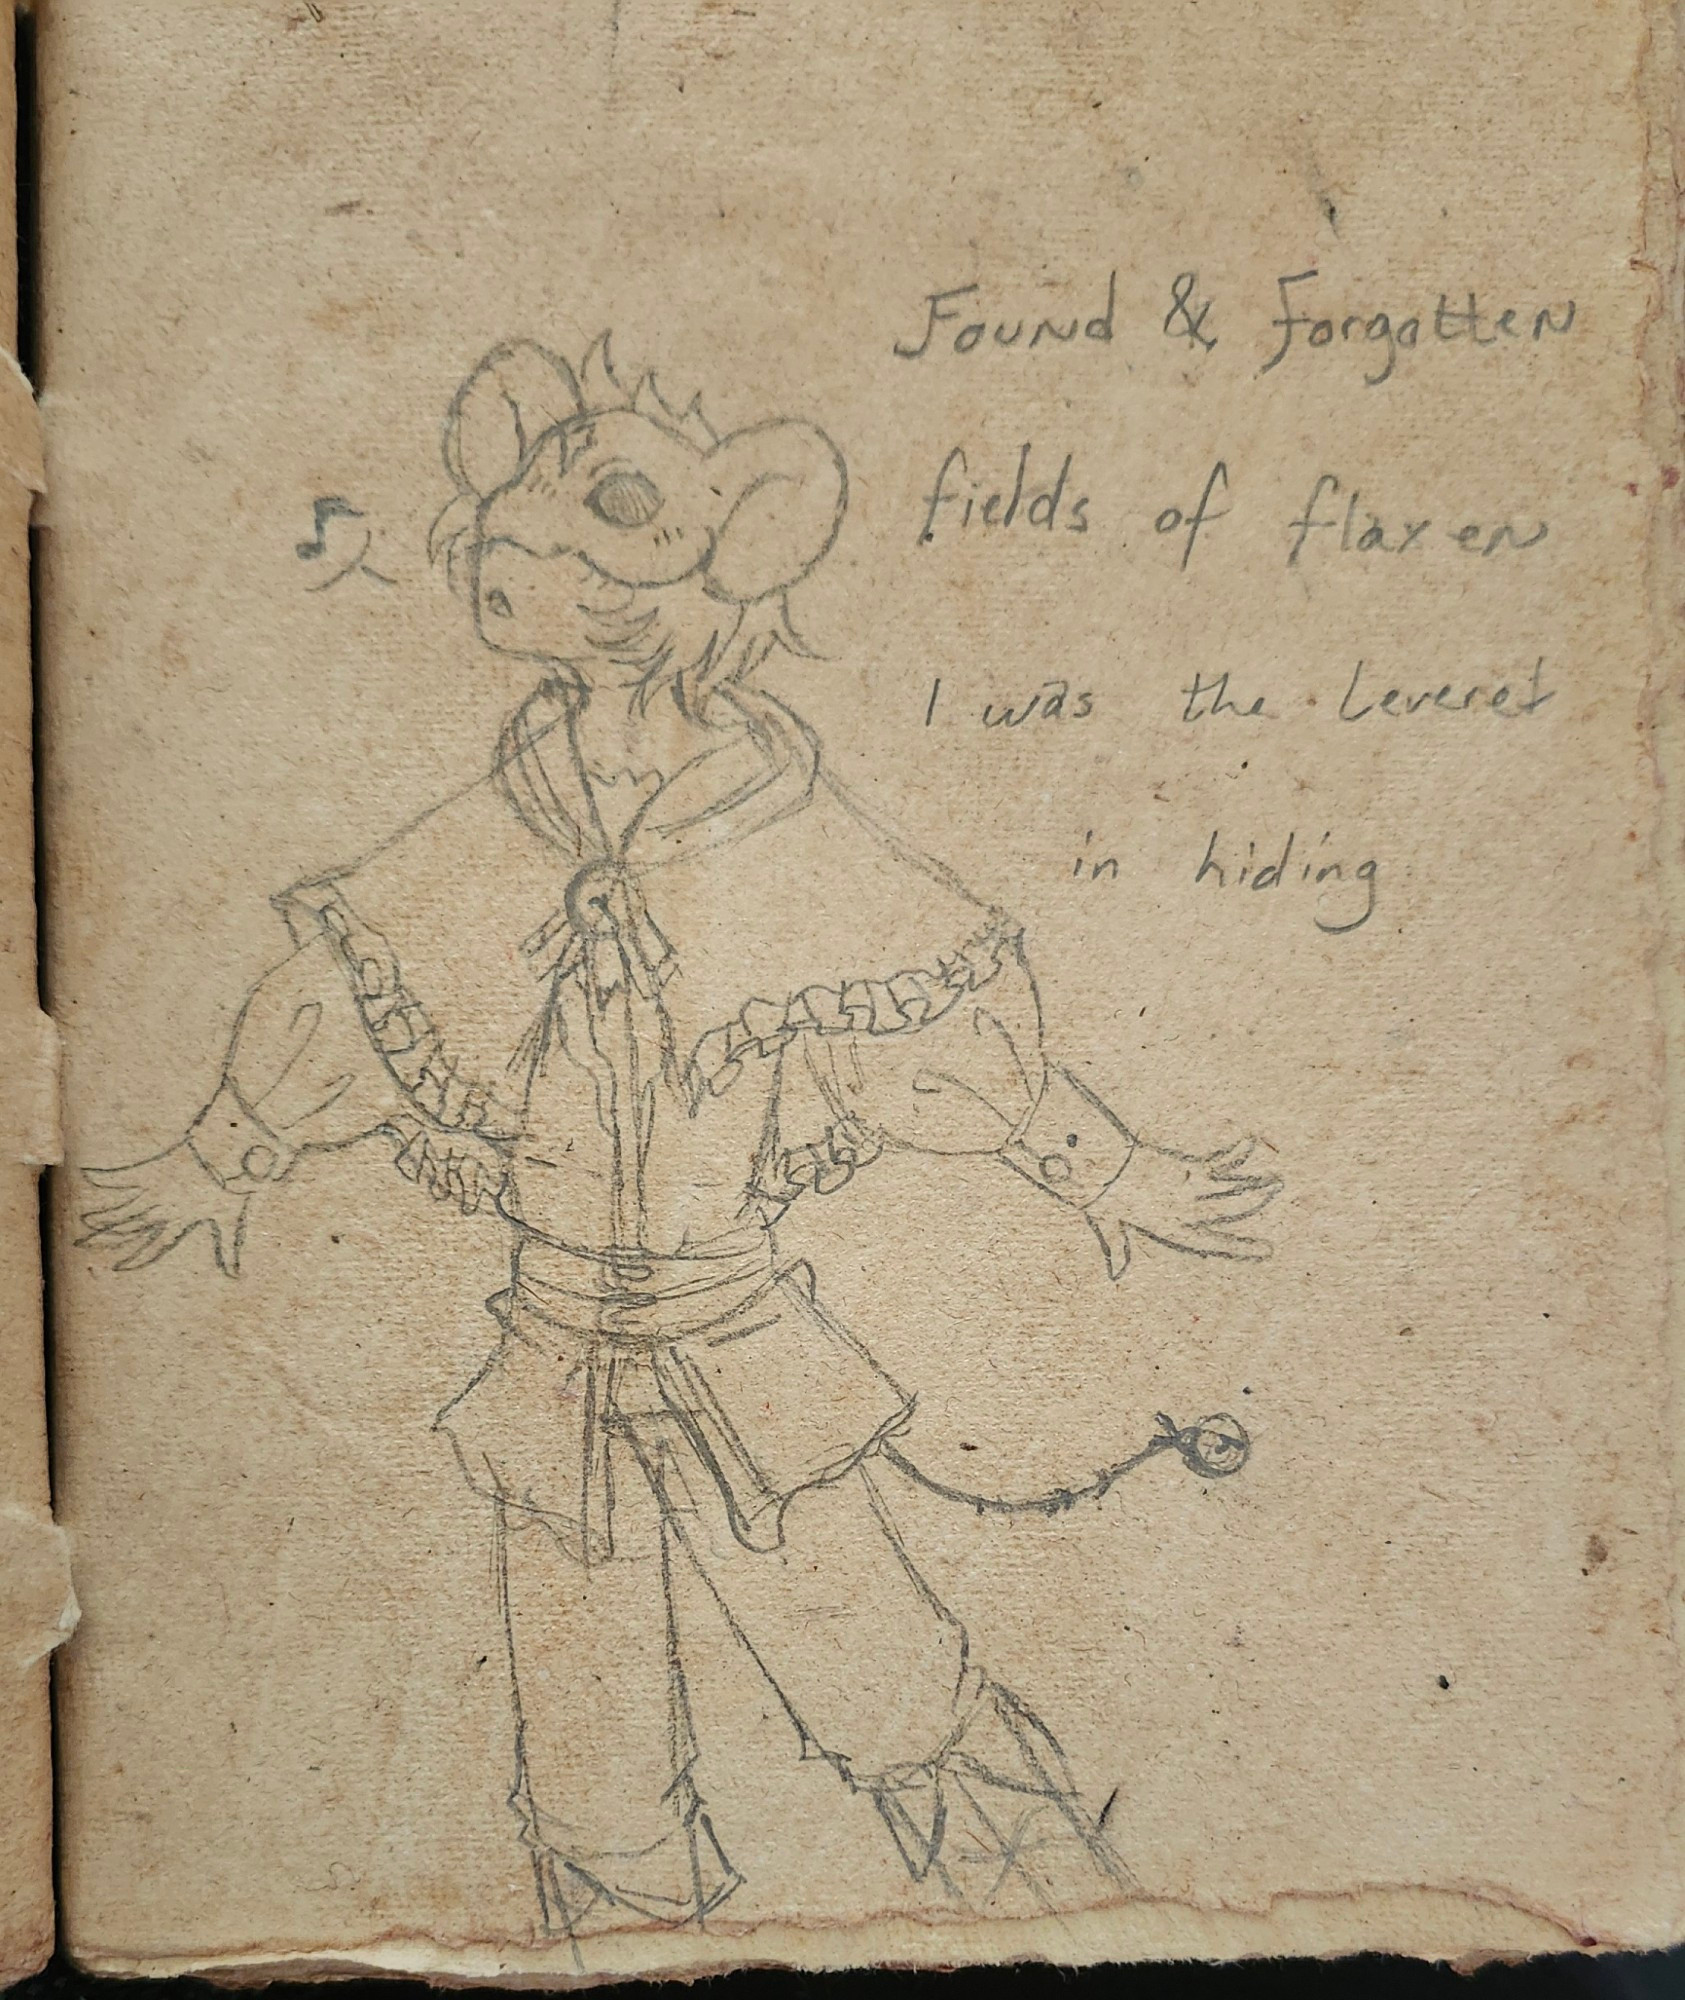 Found & Forgotten
fields of flaxen
I was the leveret
in hiding